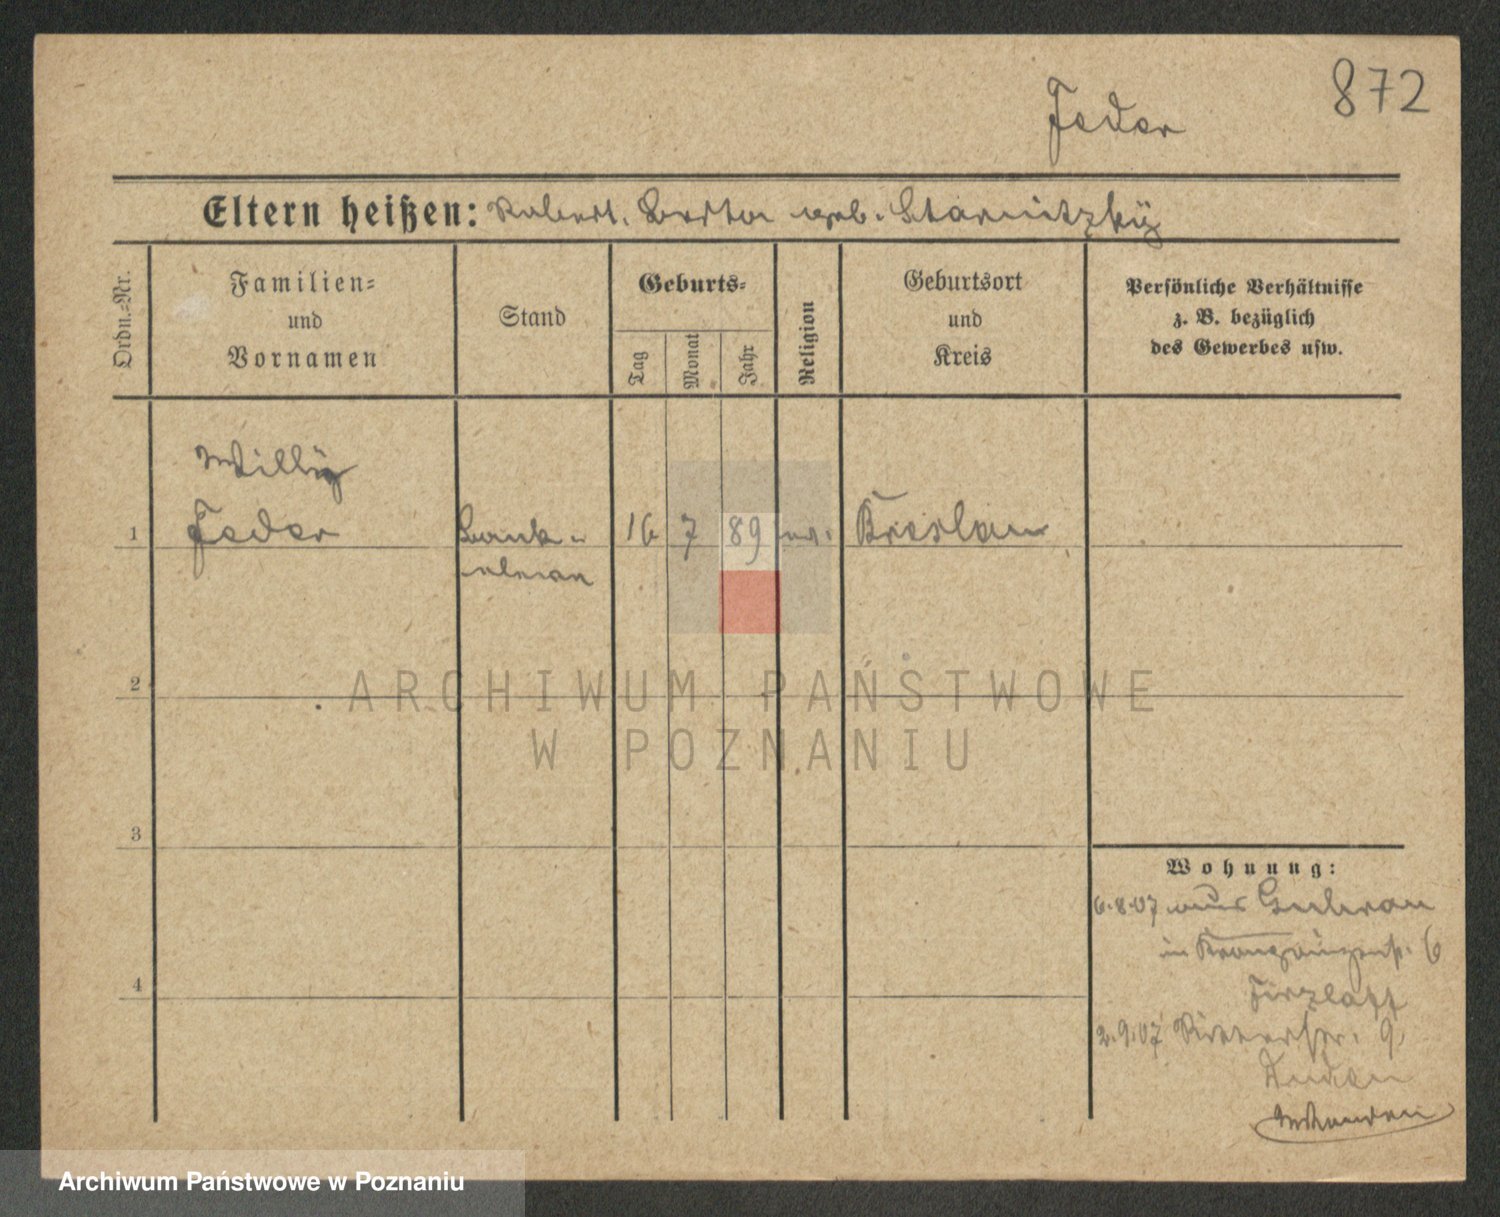 872
Feder
Eltern heißen: Robert. Berta geb. Starnitzky
Ordn.-Nr.
Familien-
und
Vornamen
Stand
Geburts-
Tag
Monat
Jahr
Religion
Geburtsort
und
Kreis
Persönliche Verhältnisse
z. B. bezüglich
des Gewerbes usw.
Willy
1 Feder Bank- 16 7 89 ev. Breslau
2
ARCHIWUM PAŃSTWOWE
W POZNANIU
3
Wohnung:
6.8.07 aus Guhrau
in 6
4
2.9.07 Ritterstr. 9
Archiwum Państwowe w Poznaniu